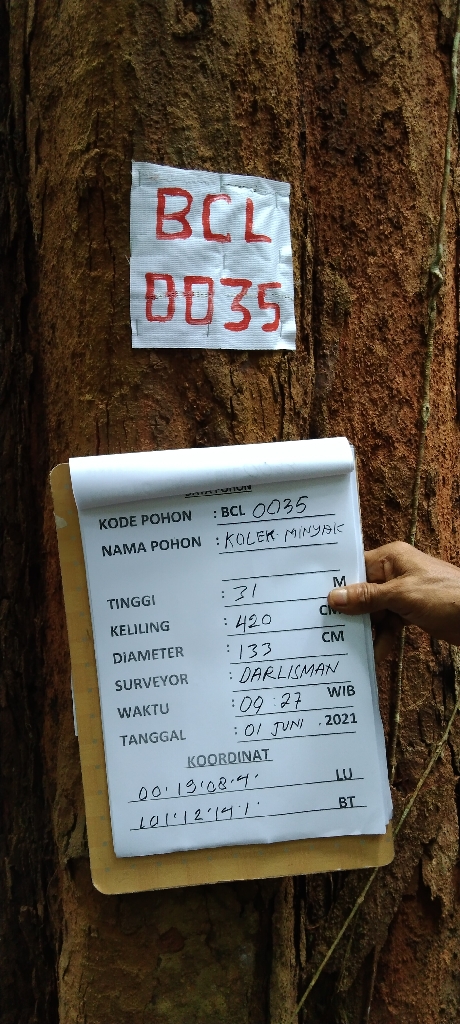 BCL
0035
DATA POHON
KODE POHON : BCL 0035
NAMA POHON : KOLEK MINYAK
TINGGI : 31 M
KELILING : 420 CM
DIAMETER : 133 CM
SURVEYOR : DARLISMAN
WAKTU : 09 : 27 WIB
TANGGAL : 01 JUNI . 2021
KOORDINAT
00° 19' 08.4" LU
101° 12' 14.1" BT